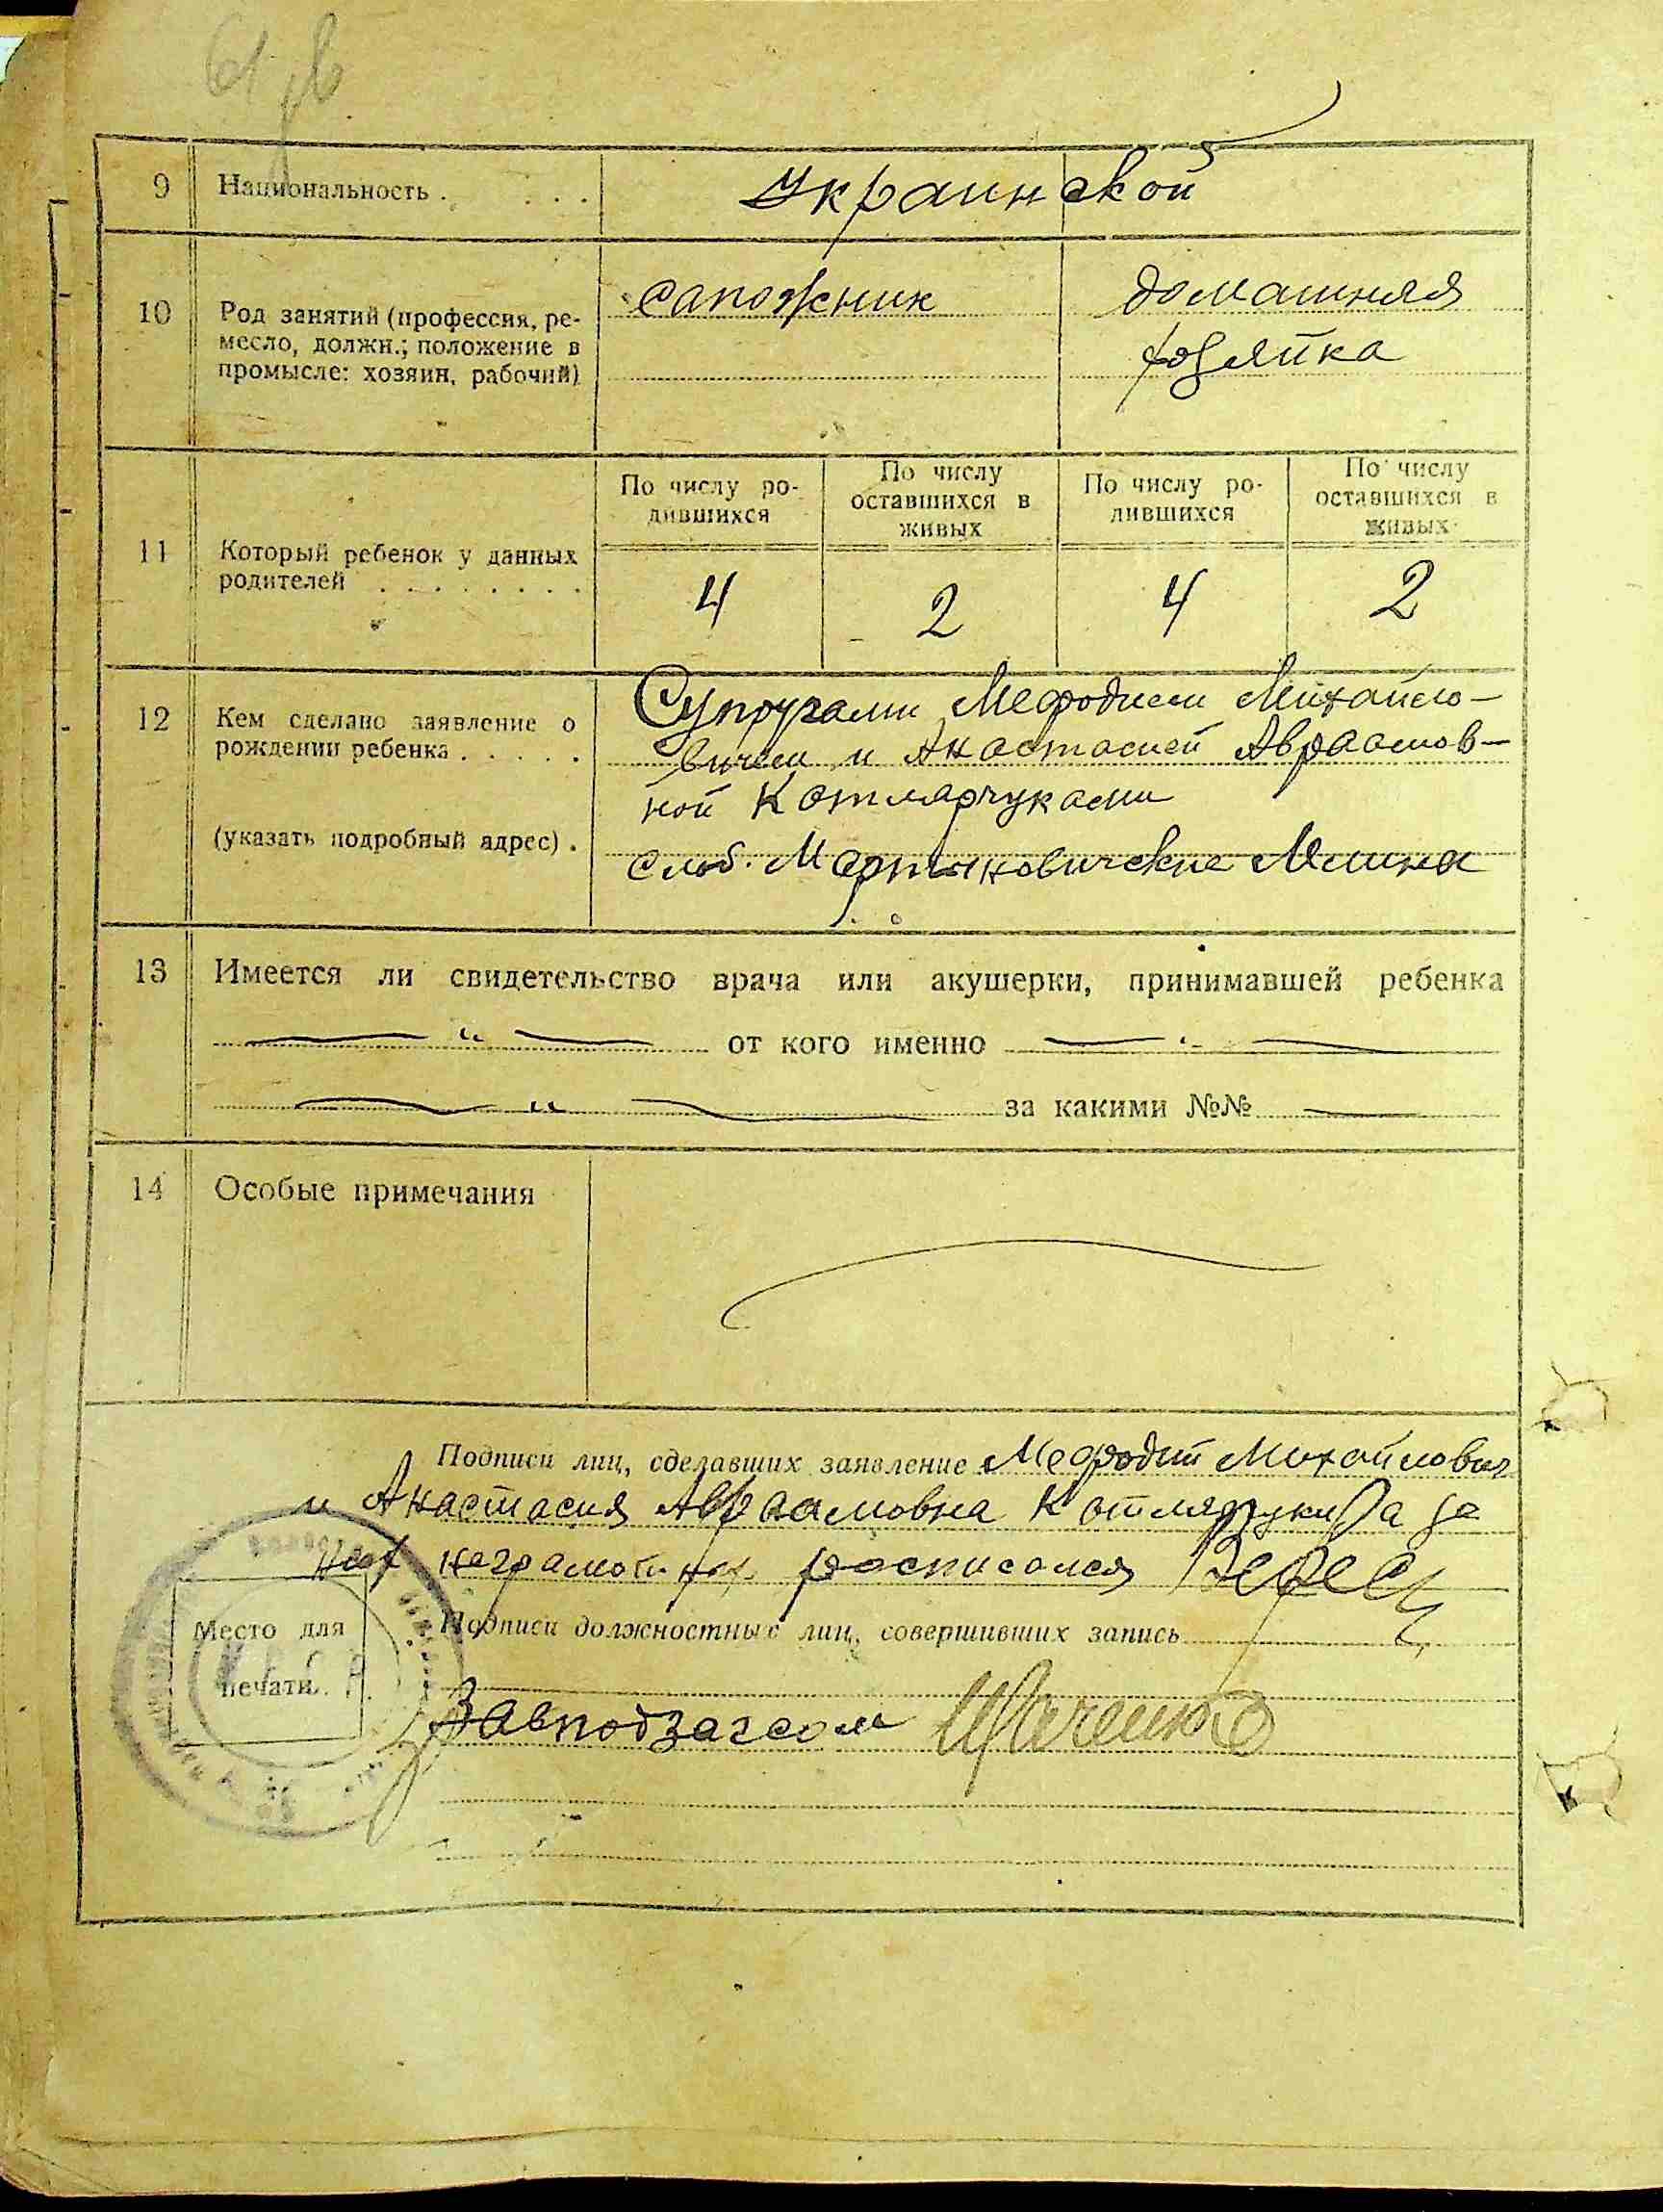 9 Национальность . . . . украинской
10 Род занятий (профессия, ре-
месло, должн.; положение в
промысле: хозяин, рабочий)
сапожник домашняя
хозяйка
11 Который ребенок у данных
родителей . . . . . . . .
По числу ро-
дившихся
По числу
оставшихся в
живых
По числу ро-
дившихся
По числу
оставшихся в
живых
4 2 4 2
12 Кем сделано заявление о
рождении ребенка . . . . .
(указать подробный адрес) .
Супругами Мефодием Михайло-
вичем и Анастасией Авраамов-
ной Котлярчуками
слоб. Мартыновичские Млинки
13 Имеется ли свидетельство врача или акушерки, принимавшей ребенка
— " — от кого именно — " —
— " — за какими №№ —
14 Особые примечания
Подписи лиц, сделавших заявление Мефодий Михайлович
и Анастасия Авраамовна Котлярчуки а за
них неграмотных расписался
Подписи должностных лиц, совершивших запись
Место для
печати.
Завподзагсом